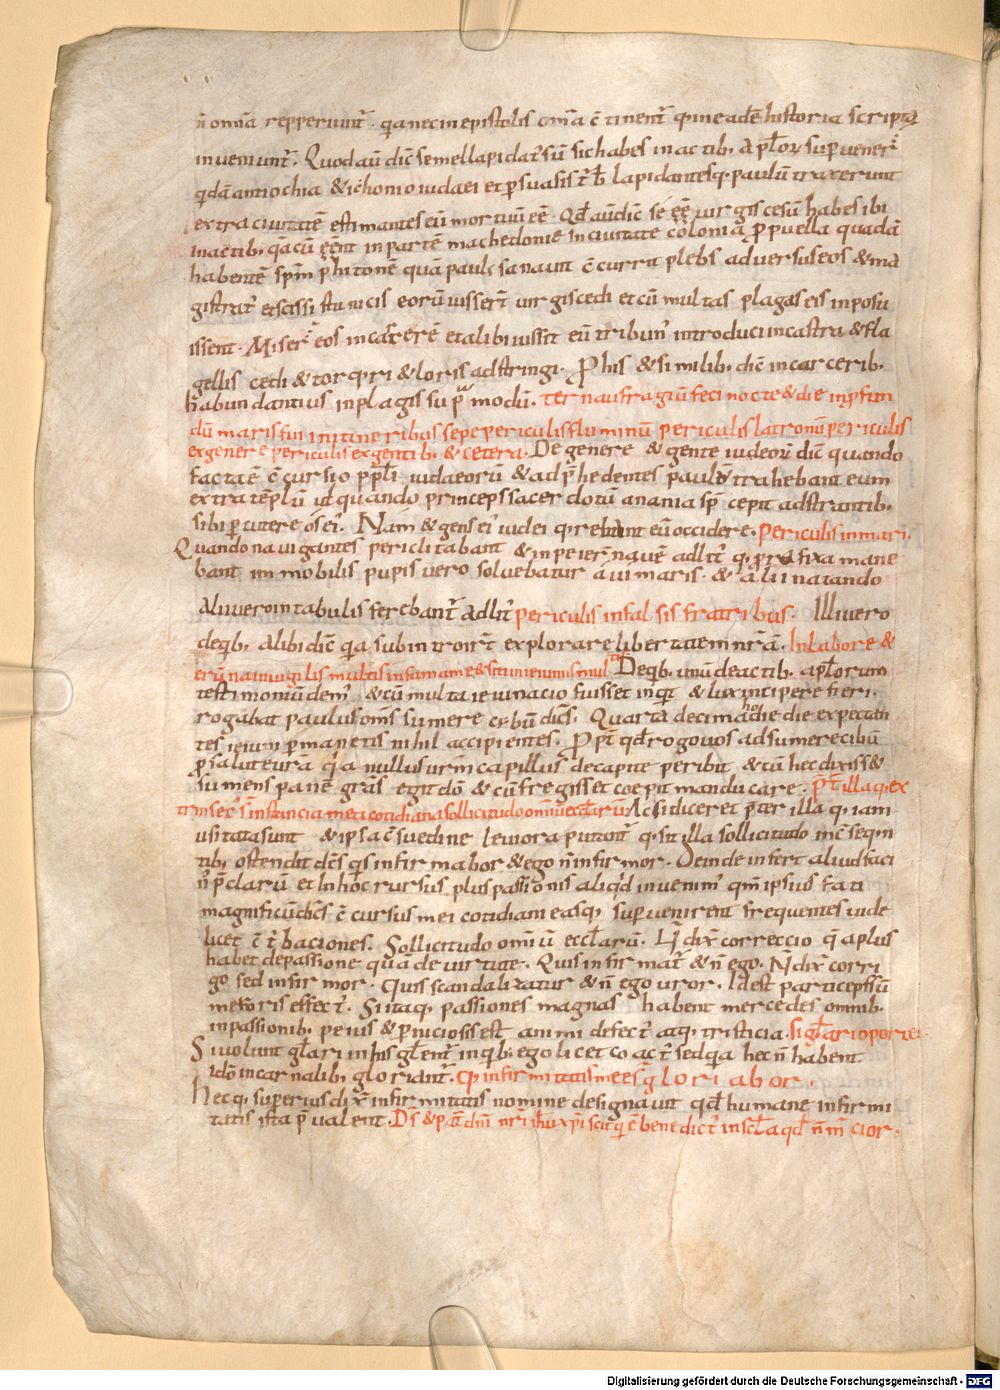 n̄ omīa repperiunt᷑. qa nec in epistolis omīa ↄ̄tinent᷑ q ineadē historia scripta
inveniunt᷑. Quod aū dic̄ semel lapidat᷑ sū sic habes in actib; ap̄lor̄ supvener᷑
qdā antiochia & ichonio iudaei et psuasis t᷑b̄ lapidantesq. paulū traxerunt
extra civitatē estimantes eū mortuū eē. Qd̄ aū dic̄ se ęę virgis cesū habes ibi
in actib; qa cū ęęnt in partē machedonie in civitate colonia p puella quadā
habentē sp̄m phitonē quā paul; sanavit ↄ̄currit plebs adversus eos & ma
gistrat᷑ et scissis tunicis eorū iusser᷑ virgis cedi et cū multas plagas eis inposu
issent. Miser᷑ eos in carcerē et alibi iussit eū tribun᷑ introduci in castra & fla
gellis cedi & torq;ri & loris adstringi. P his & similib; dic̄ in carcerib;
habundantius in plagis sup modū. ter naufragiū feci nocte & die in pfun
dū maris fui in itineribus sepe periculis fluminū periculis latronū periculis
ex genere periculis ex gentib; & cetera. De genere & gente iudeor̄ dic̄ quando
facta ē ↄ̄cursio ppl̄i iudaeorū & adp̄hedentes paulū trahebant eum
extra tēplū ut quando princeps sacerdotū anania sp̄ cepit adstantib;
sibi pcutere os ei᷑. Nam & gens ei᷑ iudei q;rebant eū occidere. Periculis in mari.
Quando navigantes periclitabant & inpeier᷑ navē ad lit᷑ q; prora fixa mane
bant immobilis pupis vero solvebatur a vi maris. & alii natando
alii vero in tabulis ferebant᷑ ad lit᷑ periculis in falsis fratribus. Illi vero
deqb; alibi dic̄ qa subintroier᷑ explorare libertatem nr̄ā. In labore &
erūna in vigiliis multis in fame & siti in ieiuniis mul Deqb; unū de actib; apl̄orum
testimoniū dem᷑. & cū multa ieiunacio fuisset inqit & lux inciperet fieri.
rogabat paulus om̄s sumere cybū dic̄s. Quarta decima hodie die expectan
tes ieiuni pmanetis nihil accipientes. Ppt̄ qd̄ rogo vos ad sumere cibū
p salute vr̄ā qa nullius vr̄m capillus de capite peribit & cū hec dixiss&
sumens panē gr̄as egit dō & cū fregisset coepit manducare. p̄t̄ illa q; ex
trinsec᷑ s̄ instancia mea cotidiana sollicitudo omniū ecclar̄ū Ac si diceret p̄ter illa q; iam
usitata sunt & ipsa ↄ̄suetudine leviora putant᷑ q; sit illa sollicitudo in ↄ̄seqn
tib; ostendit dic̄s qs infirmabor & ego n̄ infirmor. Deinde infert aliud faci
n᷑ p̄clarū et In hoc rursus plus passionis aliqd̄ invenim᷑ qm̄ ipsius fati
magnificū dic̄s ↄ̄cursus mei cotidiani easq; supvenirent frequentes vide
licet ↄ̄t᷑baciones. Sollicitudo omīū eccl̄arū. N̄ dix᷑ correccio q̄ a plus
habet de passione quā de virtute. Quis infirmat᷑ & n̄ ego. N̄ dix᷑ corri
go sed infirmor. Quis scandalizatur & n̄ ego uror. Idest particeps sū
meroris effect᷑. Si itaq; passiones magnas habent mercedes omnib;
in passionib; peius & pniciosis est animi defect᷑ atq; tristicia. si gl̄ari oportet.
Si volunt gl̄ari in his gl̄ent᷑ in qb; ego licet coact᷑ sed qa hec n̄ habent
idō in carnalib; gloriant᷑. q; infirmitatis mee s̄ gloriabor.
Hec q; superius dix᷑ infirmitatis nomine designavit qd̄ humane infirmi
tatis ista p̄valent. D̄s & pat̄ dn̄i nr̄i ih̄u xp̄i scit qi ē benedict᷑ in scl̄a qd̄ n̄ m̄cior.